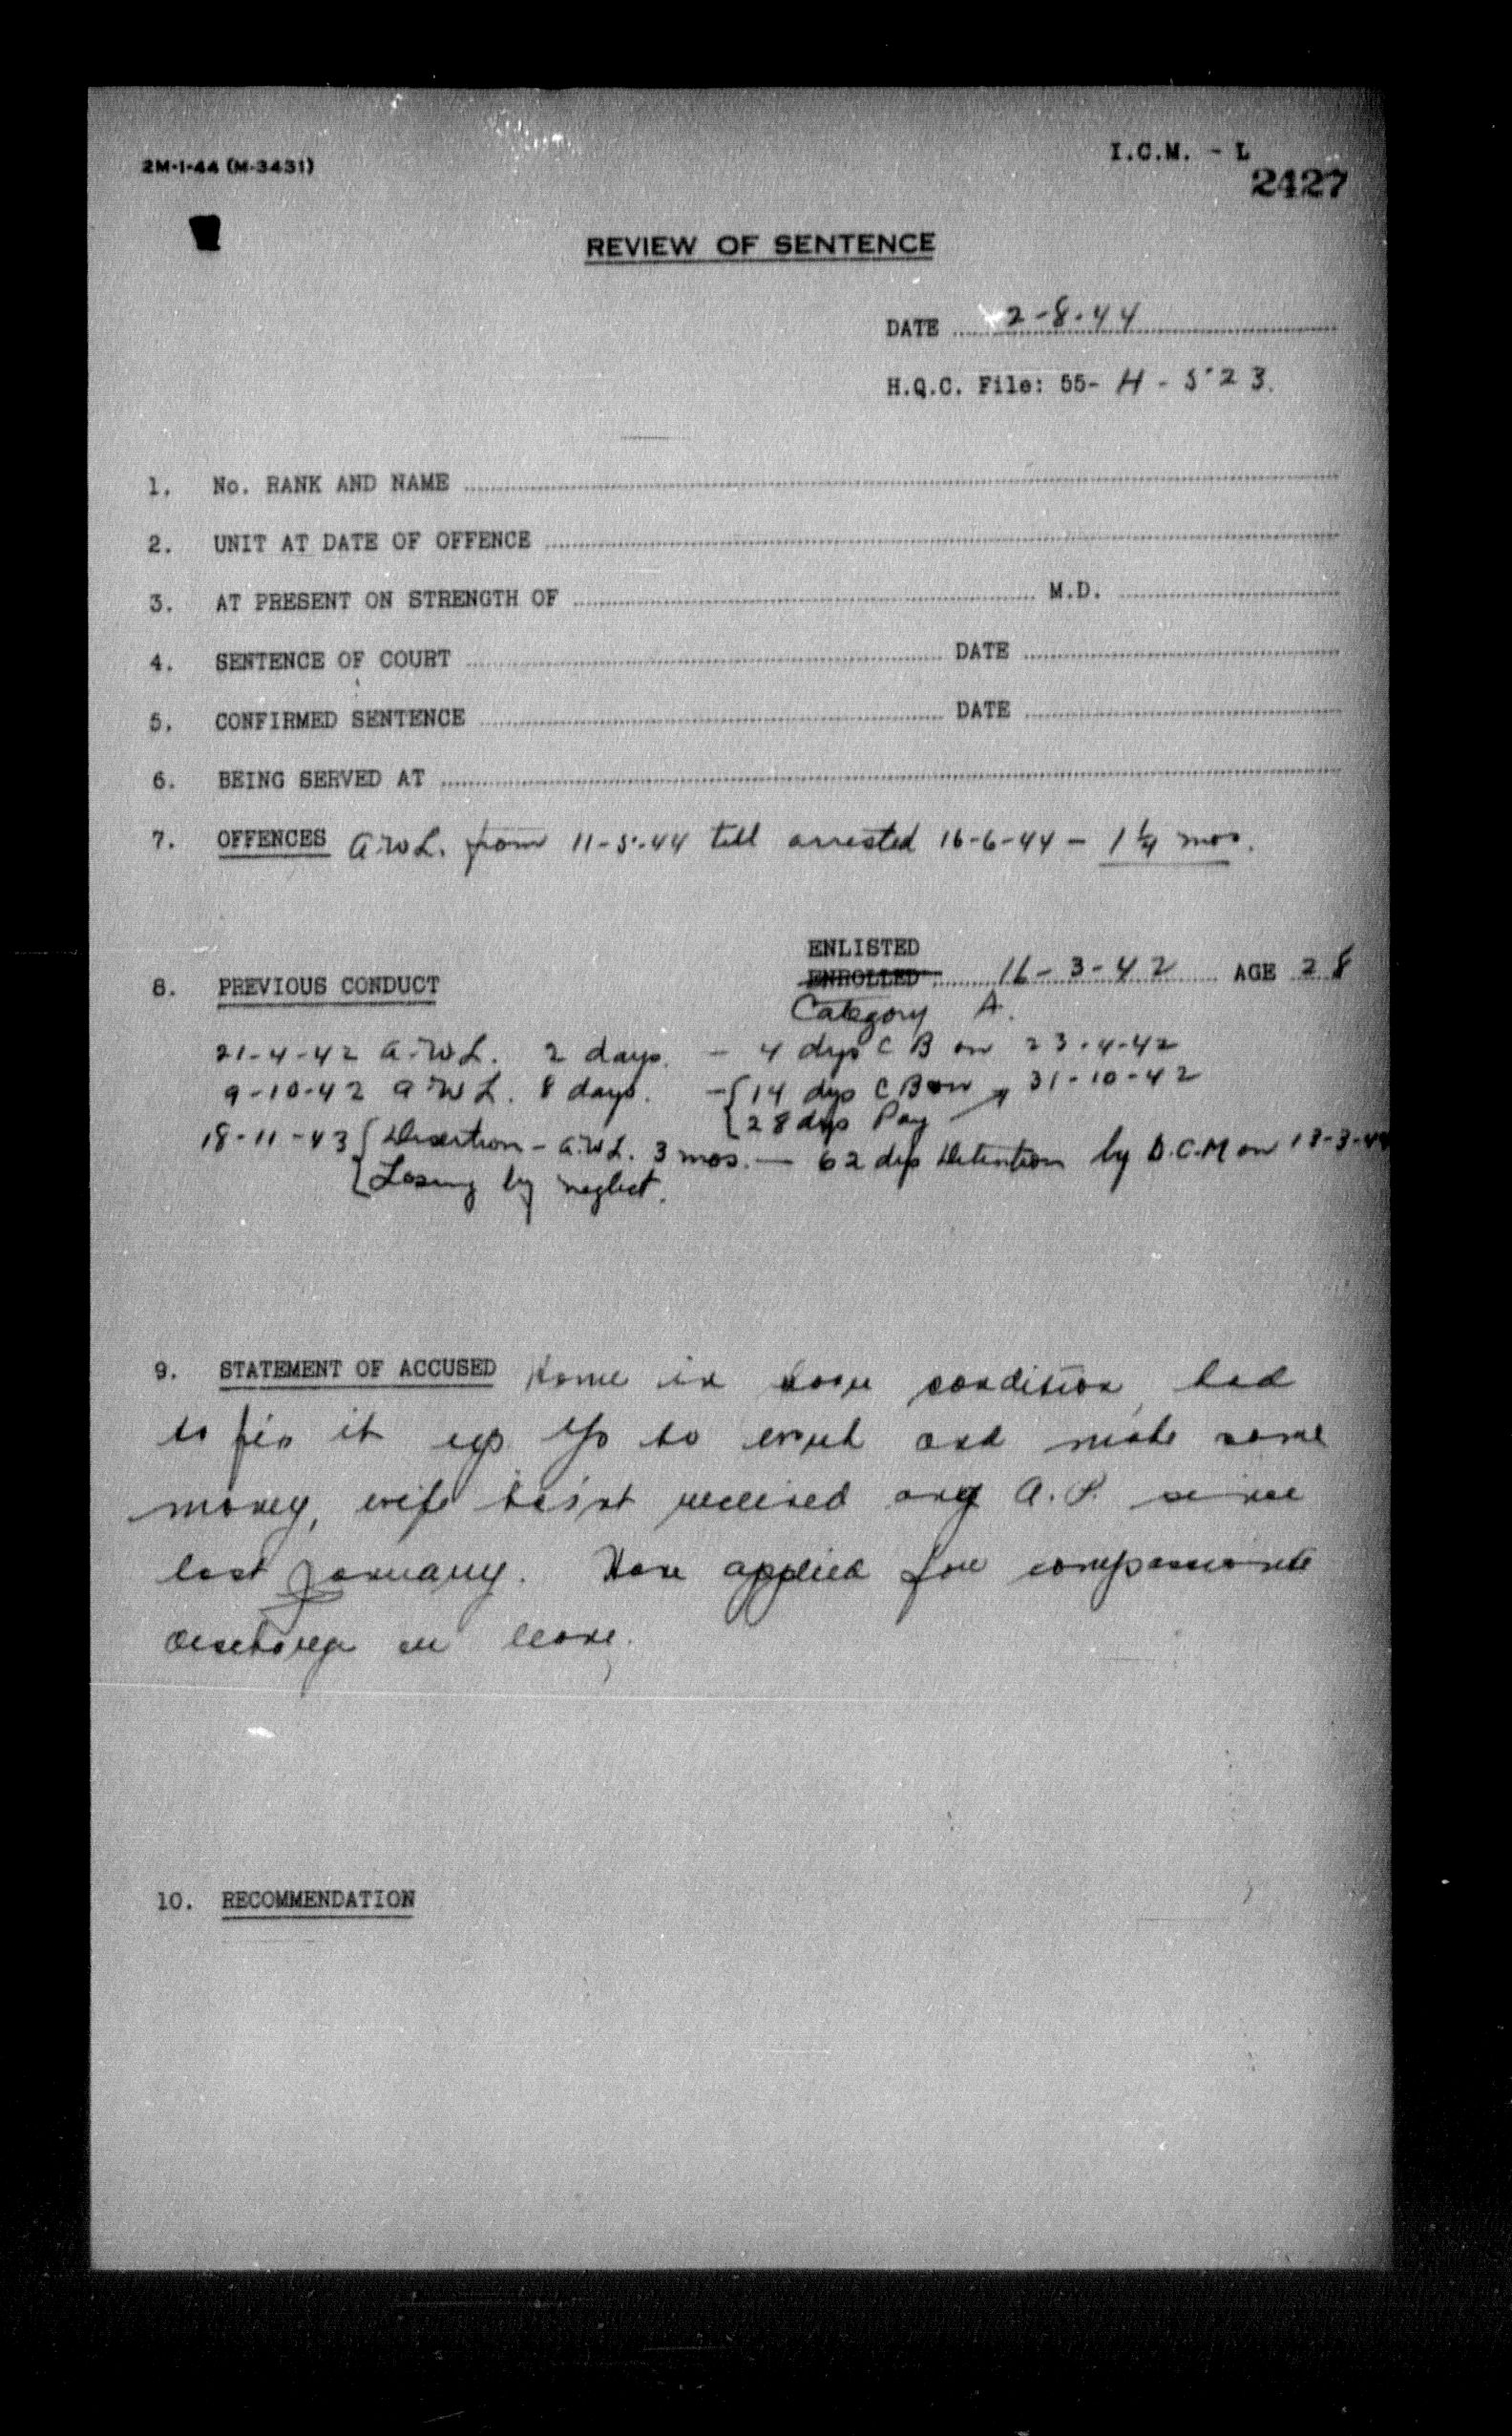 2M-1-44 (M-3431)
I.C.M. - L
2427
REVIEW OF SENTENCE
DATE 2-8-44
H.Q.C. File: 55- H - 523.
1. No. RANK AND NAME
2. UNIT AT DATE OF OFFENCE
3. AT PRESENT ON STRENGTH OF M.D.
4. SENTENCE OF COURT DATE
5. CONFIRMED SENTENCE DATE
6. BEING SERVED AT
7. OFFENCES A.W.L. from 11-5-44 till arrested 16-6-44 - 1 1/4 mos.
ENLISTED
8. PREVIOUS CONDUCT ENROLLED 16-3-42 AGE 28
Category A.
21-4-42 A.W.L. 2 days. - 4 dys C B on 23-4-42
9-10-42 A W L. 8 days. - { 14 dys C B on 31-10-42
{ 28 dys Pay
18-11-43 { Desertion - A.W.L. 3 mos. - 62 dys Detention by D.C.M on
{ Losing by neglect.
9. STATEMENT OF ACCUSED Home in condition, had
to fix it up to and make some
money, wife hasn't received any A.P. since
last January. Have applied for compassionate
discharge or leave.
10. RECOMMENDATION